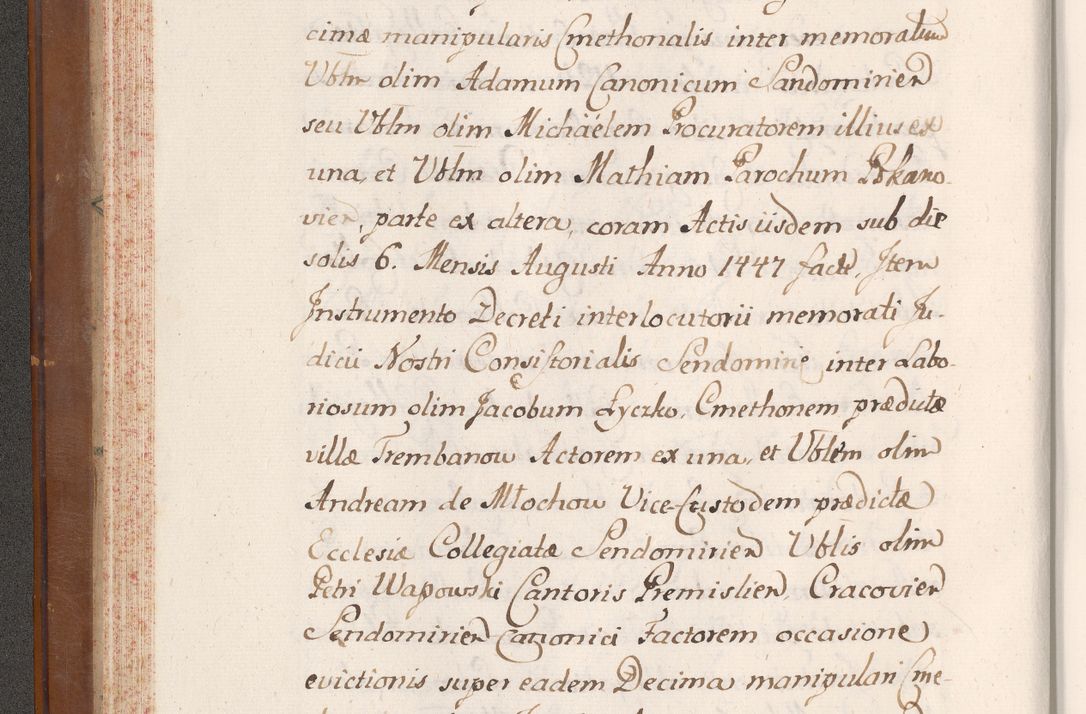 cimæ manipularis Cmethonalis inter memoratum
Vblm olim Adamum Canonicum Sandomirien
seu Vblm olim Michaëlem Procuratorem illius ex
una, et Vblm olim Mathiam Parochum Pokano-
vien, parte ex altera, coram Actis iisdem sub die
solis 6. Mensis Augusti Anno 1447 factæ, Item
Instrumento Decreti interlocutorii memorati Ju-
dicii Nostri Consistorialis Sendomirie inter Labo-
riosum olim Jacobum Łyczko, Cmethonem prædictæ
villæ Trembanow Actorem ex una, et Vblem olim
Andream de Młochow Vice-Custodem prædictæ
Ecclesiæ Collegiatæ Sendomirien Vblis olim
Petri Wapowski Cantoris Premislien, Cracovien
Sendomirien Canonici Factorem occasione
evictionis super eadem Decima manipulari Cme-